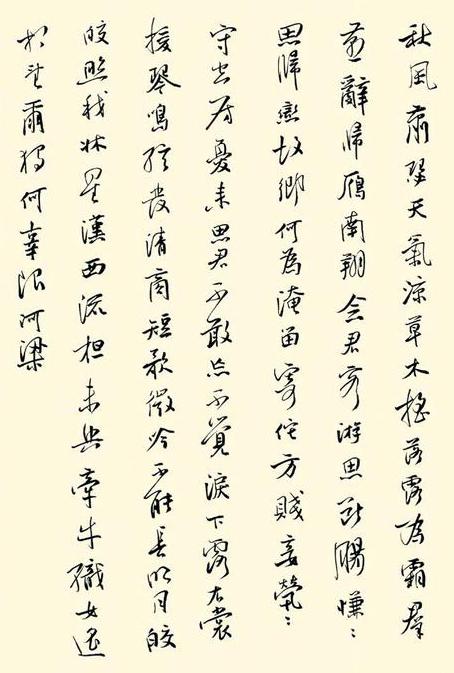 秋風蕭瑟天氣涼草木搖落露為霜群
燕辭歸雁南翔念君客游思斷腸慊〻
思歸戀故鄉何為淹留寄佗方賤妾煢〻
守空房憂來思君不敢忘不覺淚下霑衣裳
援琴鳴弦發清商短歌微吟不能長明月皎
皎照我牀星漢西流夜未央牽牛織女遥
相望爾獨何辜限河梁